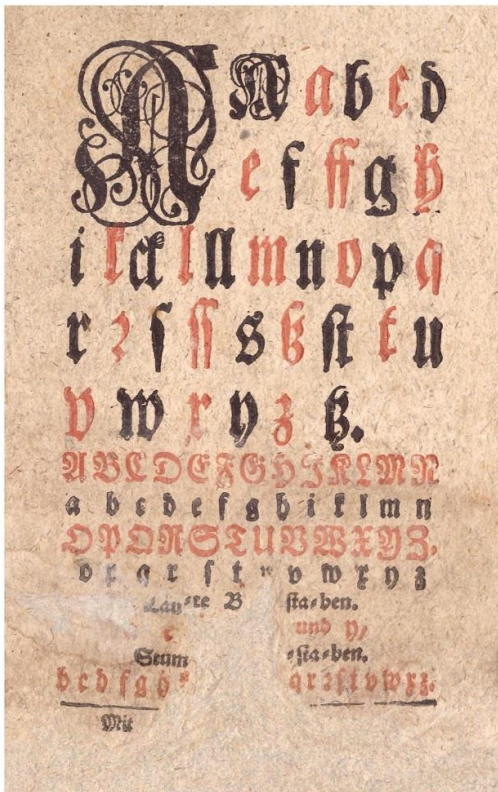 A A a b c d
e f ff g h
i k ck l ll m n o p q
r ꝛ ſ ſſ s ß ſt t u
v w x y z tz.
A B C D E F G H I K L M N
a b c d e f g h i k l m n
O P Q R S T U V W X Y Z.
o p q r ſ t u v w x y z
Lau⸗te B ſta⸗ben.
und y,
Stum ⸗ſta⸗ben.
b c d f g h q r ꝛ ſ t v w x z.
Mit